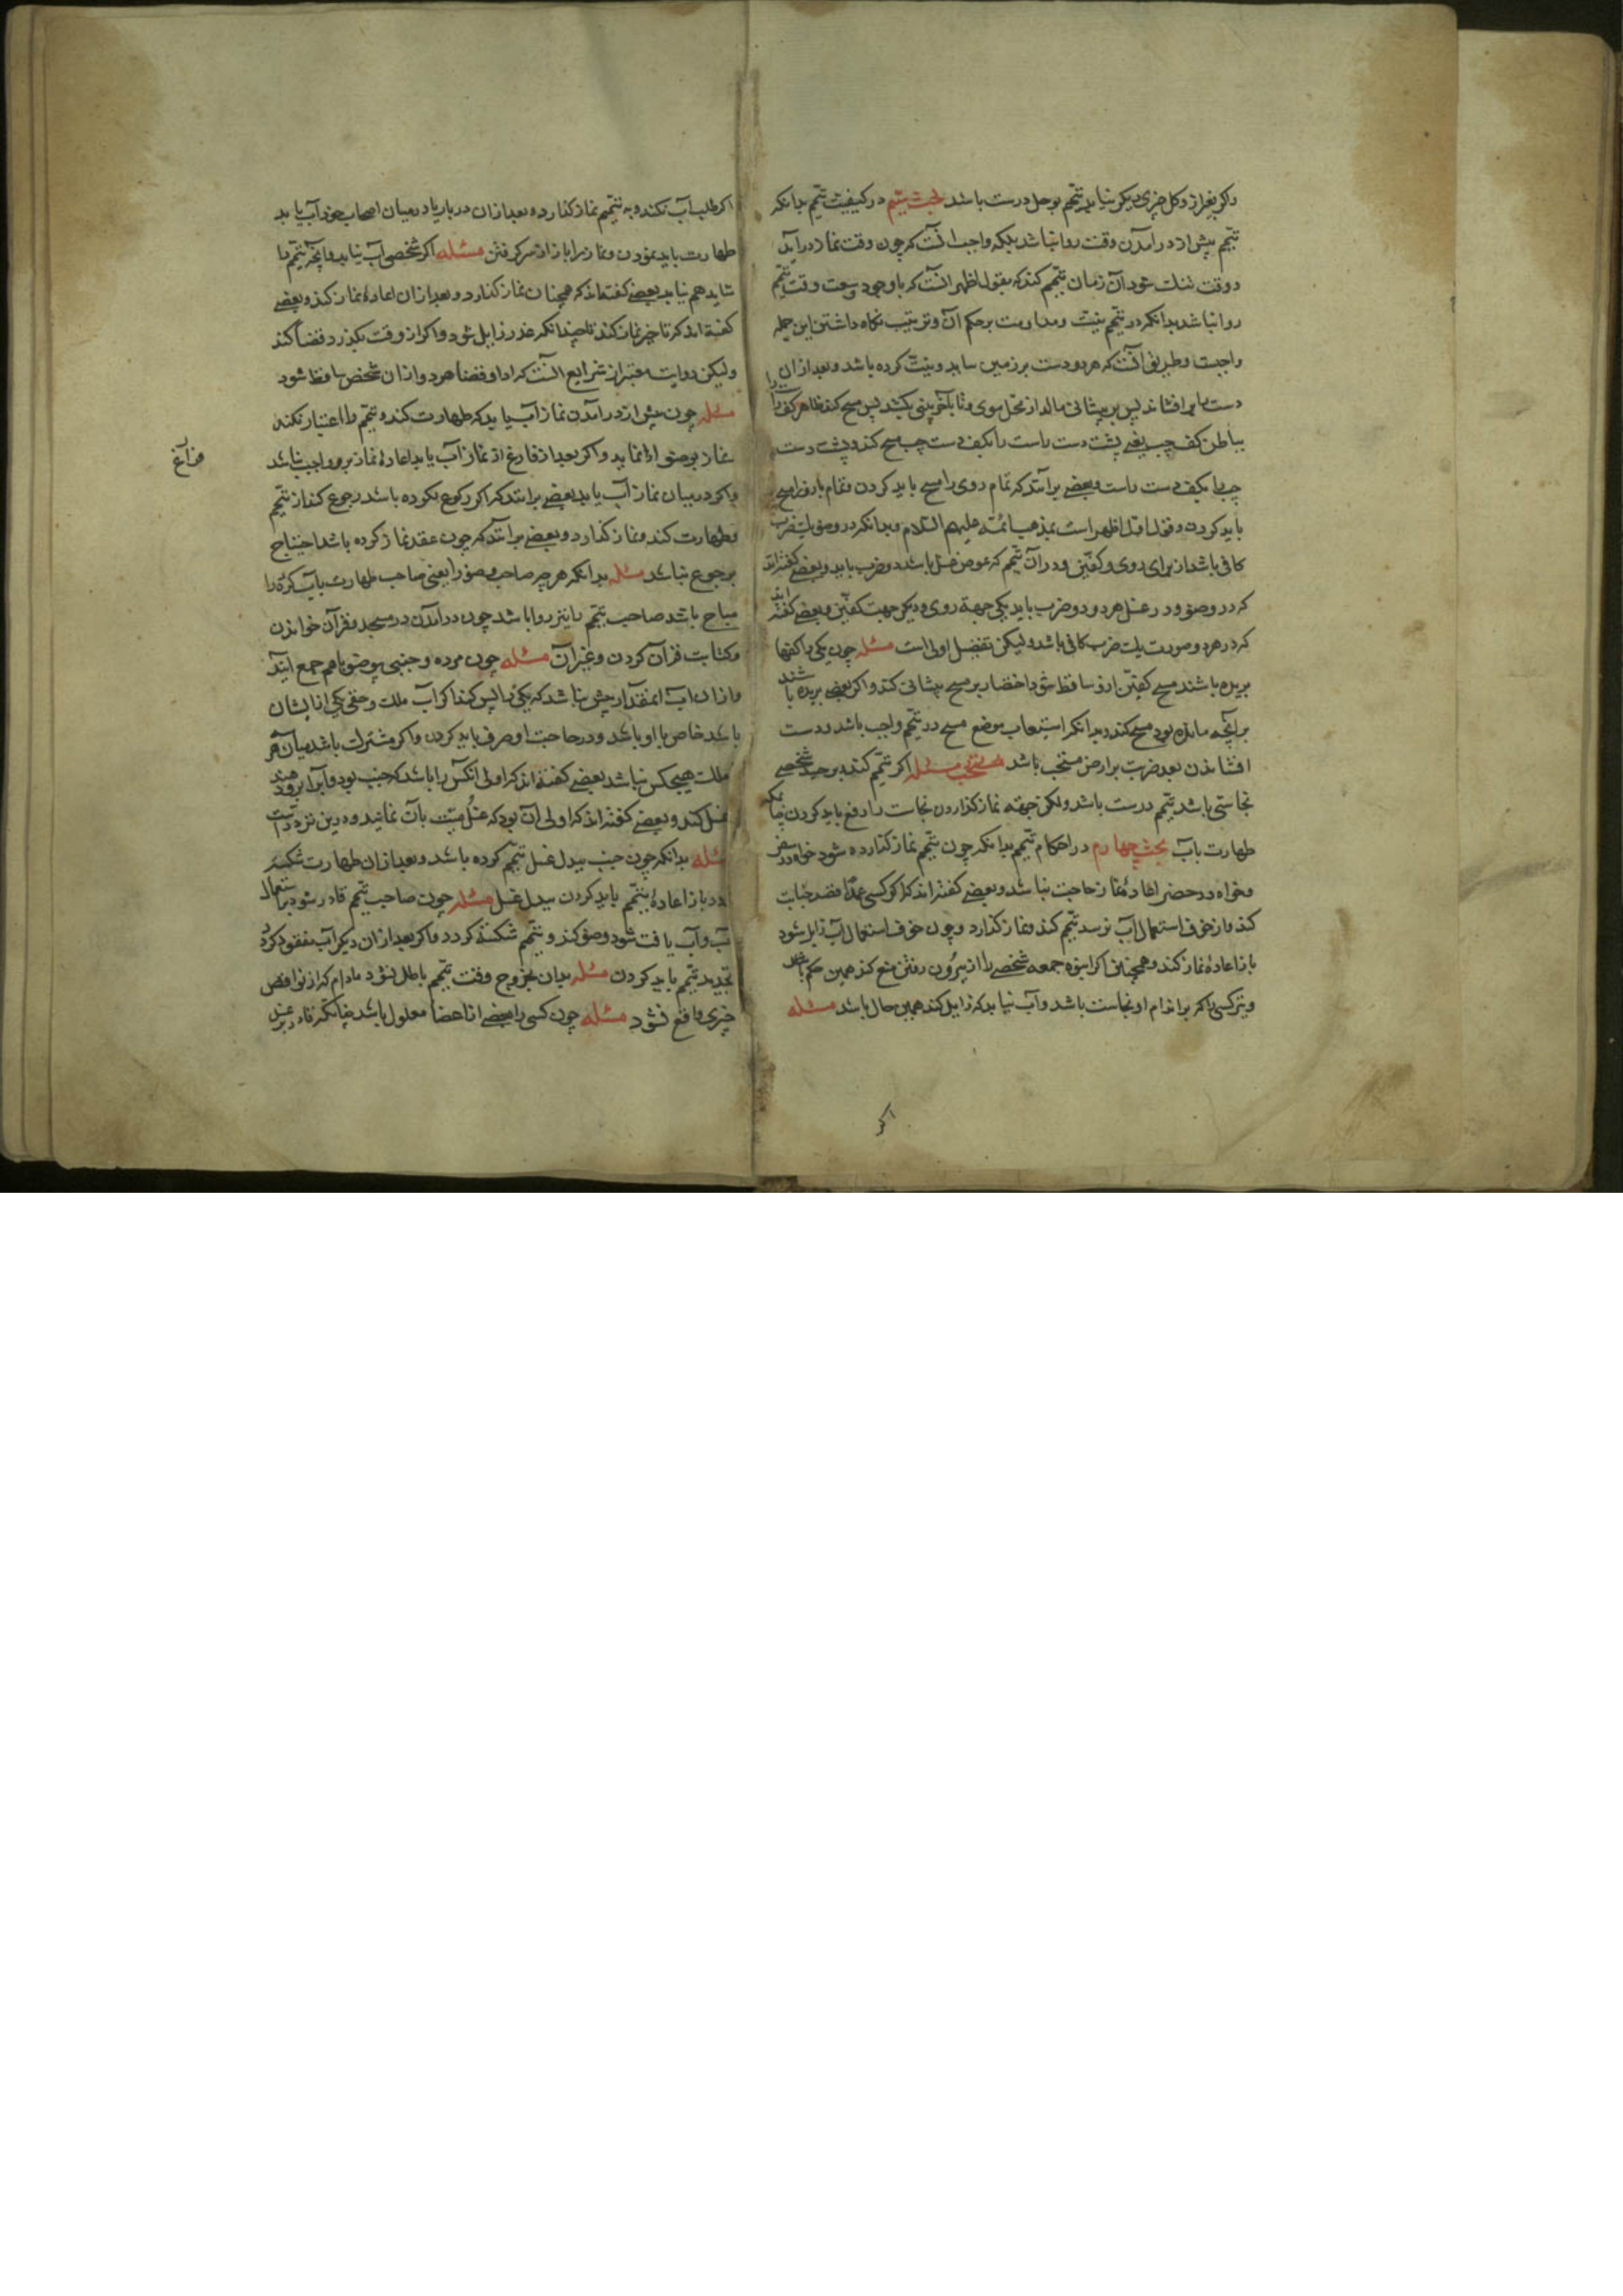 و اکر بغیر از وحل چیزی دیکر نیابد تیمّم بوحل درست باشد بحث سیّم در کیفیت تیمّم بدانکه
تیمّم پیش از درامدن وقت روا نباشد بلکه واجب آنست که چون وقت نماز درآید
و وقت تنك شود آن زمان تیمّم کند که بقول اظهر انست که با وجود وسعت وقت تیمّم
روا نباشد بدانکه در تیمّم نیّت و مداومت بر حکم آن و ترتیب نکاه داشتن این جمله
واجبست و طریق آنست که هر دو دست بر زمین ساید و نیّت کرده باشد و بعد ازان
دست را برافشاند پس بر پیشانی مالد از محل موی و تا بآخر بینی بکشد پس مسح کند ظاهر کف راست را
بباطن کف چپ یعنی پشت دست راست را بکف دست چپ مسح کند و پشت دست
چپ را بکف دست راست و بعضی برانند که تمام روی را مسح باید کردن و تمام بازو را مسح
باید کردن و قول اول اظهر است بمذهب ائمّه علیهم السّلام و بدانکه در وضو یك ضرب
کافی باشد از برای روی و کفّین و در آن تیمّم که عوض غسل باشد دو ضرب باید و بعضی کفته اند
که در وضو و در غسل هر دو دو ضرب باید یکی جهة روی و دیکر جهت کفّین و بعضی کفته اند
که در هر دو صورت یك ضرب کافی باشد و لیکن تفضیل اولی است مسئله چون یکی را کفها
بریده باشند مسح کفّین ازو ساقط شود اختصار بر مسح پیشانی کند و اکر بعضی بریده باشند
برانچه مانده بود مسح کند و بدانکه استیعاب موضع مسح در تیمّم واجب باشد و دست
افشاندن بعد ضرب بر ارض مستحب باشد مسئله اکر تیمّم کند و بر جسد شخصی
نجاستی باشد تیمّم درست باشد ولکن جهة نماز کذاردن نجاست را رفع باید کردن چنانکه
طهارت باب بحث چهارم در احکام تیمّم بدانکه چون بتیمّم نماز کذارده شود خواه در سفر
و خواه در حضر اعادهٔ نماز حاجت نباشد و بعضی کفته اند که اکر کسی عمدًا قصد جنابت
کند و از خوف استعمال آب نرسد تیمّم کند و نماز کذارد و چون خوف استعمال آب زایل شود
باز اعادهٔ نماز کند و همچنین اکر انبوه جمعه شخصی را از بیرون رفتن منع کند همین حکم باشد
و نیز کسی را که بر اندام او نجاست باشد و آب نیابد که زایل کند همین حال باشد مسئله
اکر
اکر طلب آب نکند و به تیمّم نماز کذارد و بعد ازان در بار یا در میان اصحاب خود آب یابد
طهارت باید نمودن و نماز را باز از سر کرفتن مسئله اکر شخصی آب نیابد و آنچه تیمّم را
شاید هم نیابد بعضی کفته اند که همچنان نماز کذارد و بعد ازان اعادهٔ نماز کند و بعضی
کفته اند که تاخیر نماز کند تا چندانکه عذر زایل شود و اکر از وقت بکذرد قضا کند
و لیکن روایت معتبر از شرایع آنست که ادا و قضا هر دو ازان شخص ساقط شود
مسئله چون پیش از درامدن نماز آب یابد که طهارت کند و تیمّم را اعتبار نکند
نماز بوضو ادا نماید و اکر بعد از فارغ از نماز آب یابد اعادهٔ نماز برو واجب نباشد
فراغ
و اکر در میان نماز آب یابد بعضی برانند که اکر رکوع نکرده باشد رجوع کند از تیمّم
و طهارت کند و نماز کذارد و بعضی برانند که چون عقد نماز کرده باشد احتیاج
برجوع نباشد مسئله بدانکه هر چه صاحب وضو را یعنی صاحب طهارت بآب کرده را
مباح باشد صاحب تیمّم را نیز روا باشد چون درآمدن در مسجد و قرآن خواندن
و کتابت قرآن کردن و غیر آن مسئله چون مرده و جنبی و بی وضو باهم جمع آیند
و ازان آب انمقدار بیش نباشد که یکی را بس کند اکر آب ملك و حق یکی از ایشان
باشد خاص با او باشد و در حاجت او صرف باید کردن و اکر مشترك باشد میان هر
ملك هیچکس نباشد بعضی کفته اند که اولی آنکس را باشد که جنب بود و آب را برو دهند
غسل کند و بعضی کفته اند که اولی آن بود که غسل میّت بآن نمایند و این نزد
مسئله بدانکه چون جنب ببدل غسل تیمّم کرده باشد و بعد ازان طهارت شکسته
کردد باز اعادهٔ تیمّم باید کردن ببدل غسل مسئله چون صاحب تیمّم قادر شود بر استعمال
آب و آب یافت شود وضو کند و تیمّم شکسته کردد و اکر بعد ازان دیکر آب مفقود کردد
تجدید تیمّم باید کردن مسئله بدان بخروج وقت تیمّم باطل نشود مادام که از نواقض
چیزی واقع نشود مسئله چون کسی را بعضی از اعضا معلول باشد چنانکه قادر بر غسل